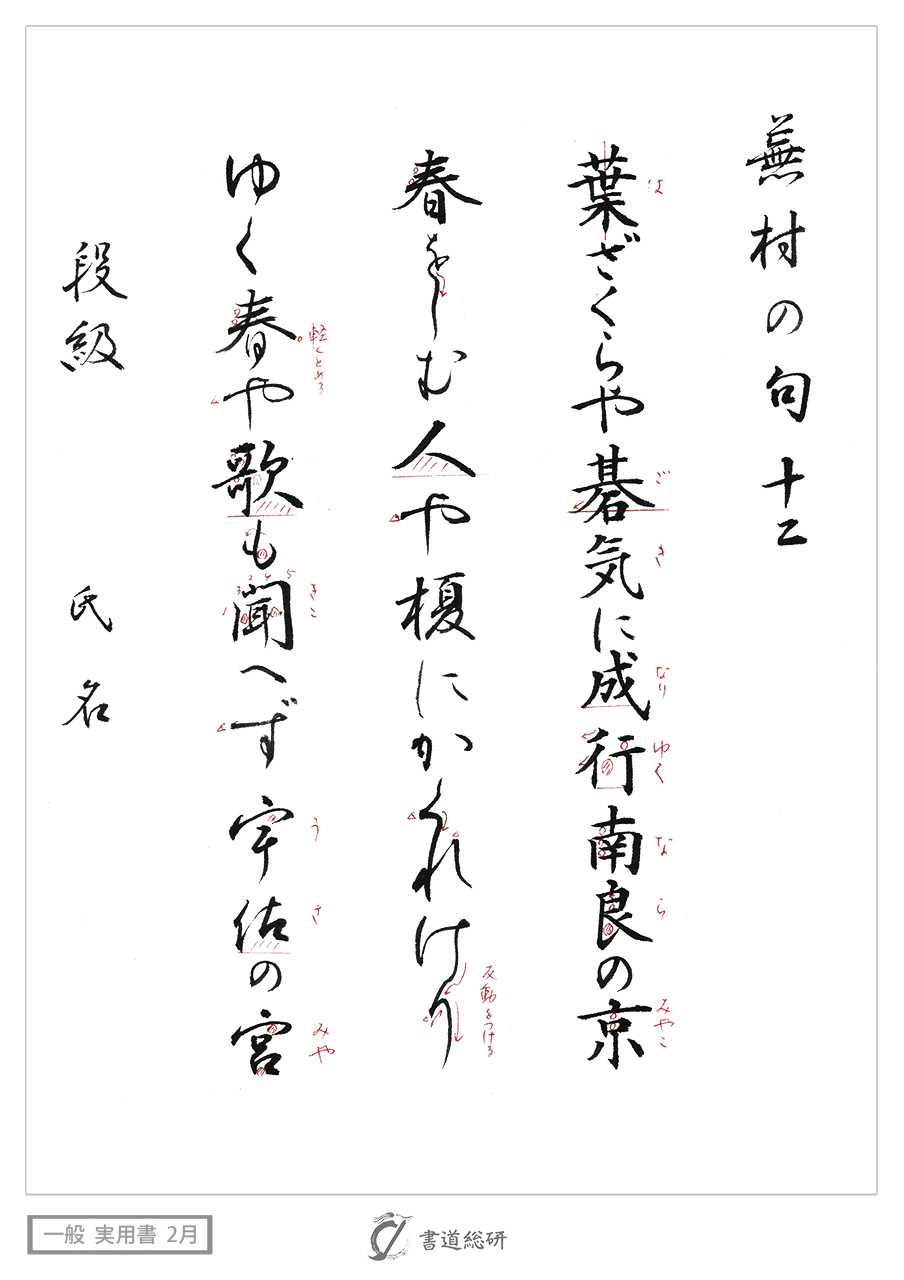 蕪村の句 十二
葉ざくらや碁気に成行南良の京
は
ご
き
なり
ゆく
な
ら
みやこ
春をしむ人や榎にかくれけり
反動をつける
ゆく春や歌も聞へず宇佐の宮
軽くとめる
1 2 3 4 5
きこ
う
さ
みや
段級 氏名
一般 実用書 2月
書道総研